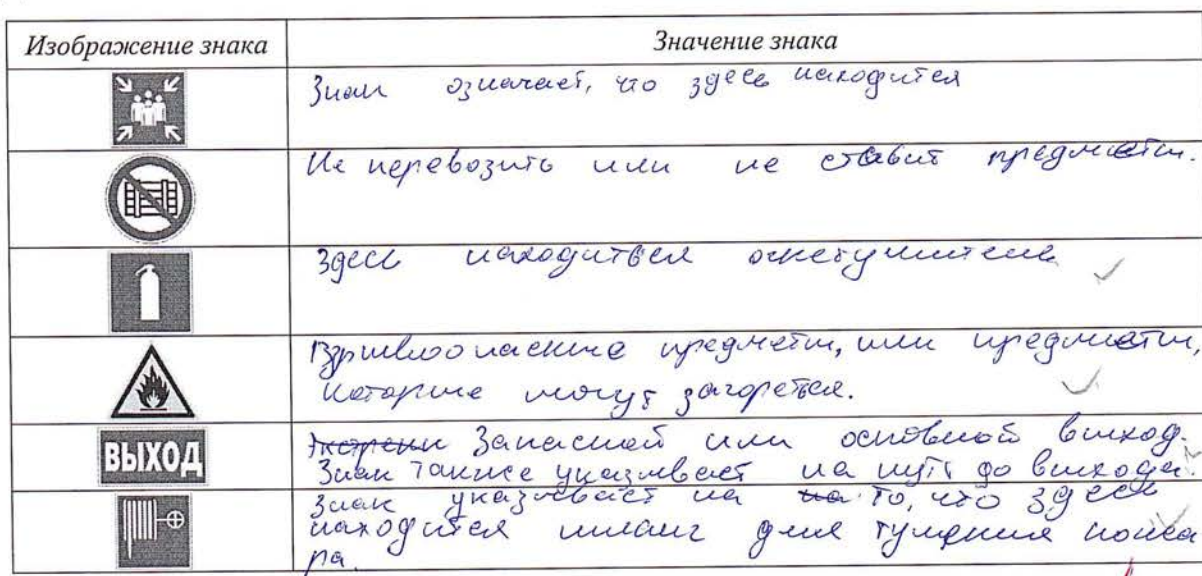 Изображение знака
Значение знака
Знак означает, что здесь находится
Не перевозить или не ставит предмети.
Здесь находиться огнетушитель
Взривоопасние предмети, или предмети,
которие могут загорется.
ВЫХОД
Экстренн Запасной или основной виход.
Знак также указивает на путь до вихода.
Знак указивает на на то, что здесь
находится шланг для тушения пожа
ра.